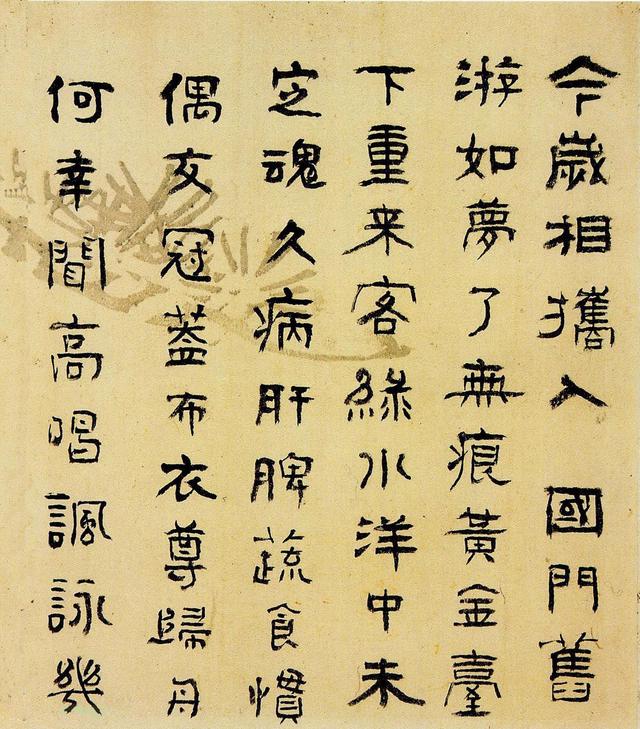 今歲相攜入 國門舊
游如夢了無痕黃金臺
下重来客綠水洋中未
定魂久病肝脾蔬食慣
偶交冠蓋布衣尊歸舟
何幸聞高唱諷詠幾